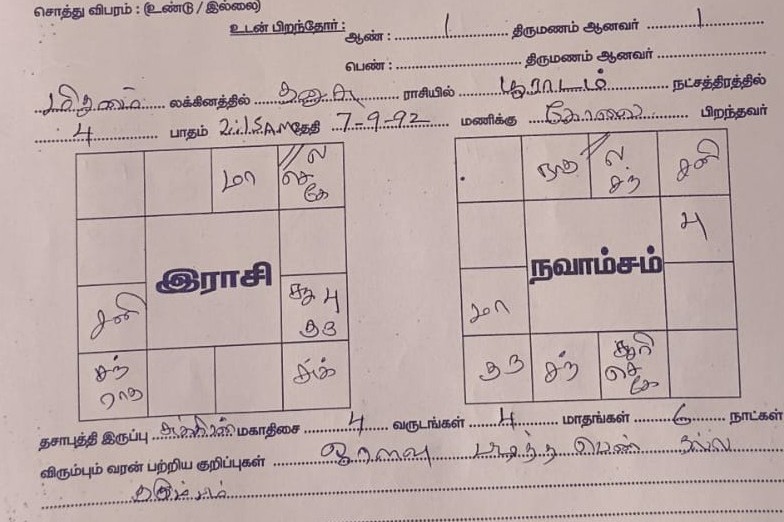 சொத்து விபரம் : (உண்டு / இல்லை)
உடன் பிறந்தோர் : ஆண் : 1 திருமணம் ஆனவர் 1
பெண் : திருமணம் ஆனவர்
மிதுனம் லக்கினத்தில் தனுசு ராசியில் பூராடம் நட்சத்திரத்தில்
4 பாதம் தேதி 7-9-92 மணிக்கு பிறந்தவர்
மா ல செ கே
சனி
புத
சந் ராகு
சுக்
இராசி
குரு ல சந் சனி
பு
மா
சூரி செ கே
நவாம்சம்
தசாபுத்தி இருப்பு சுக்கிரன் மகாதிசை 4 வருடங்கள் 4 மாதங்கள் 6 நாட்கள்
விரும்பும் வரன் பற்றிய குறிப்புகள் ஓரளவு படித்த பெண் நல்ல
குடும்பம்